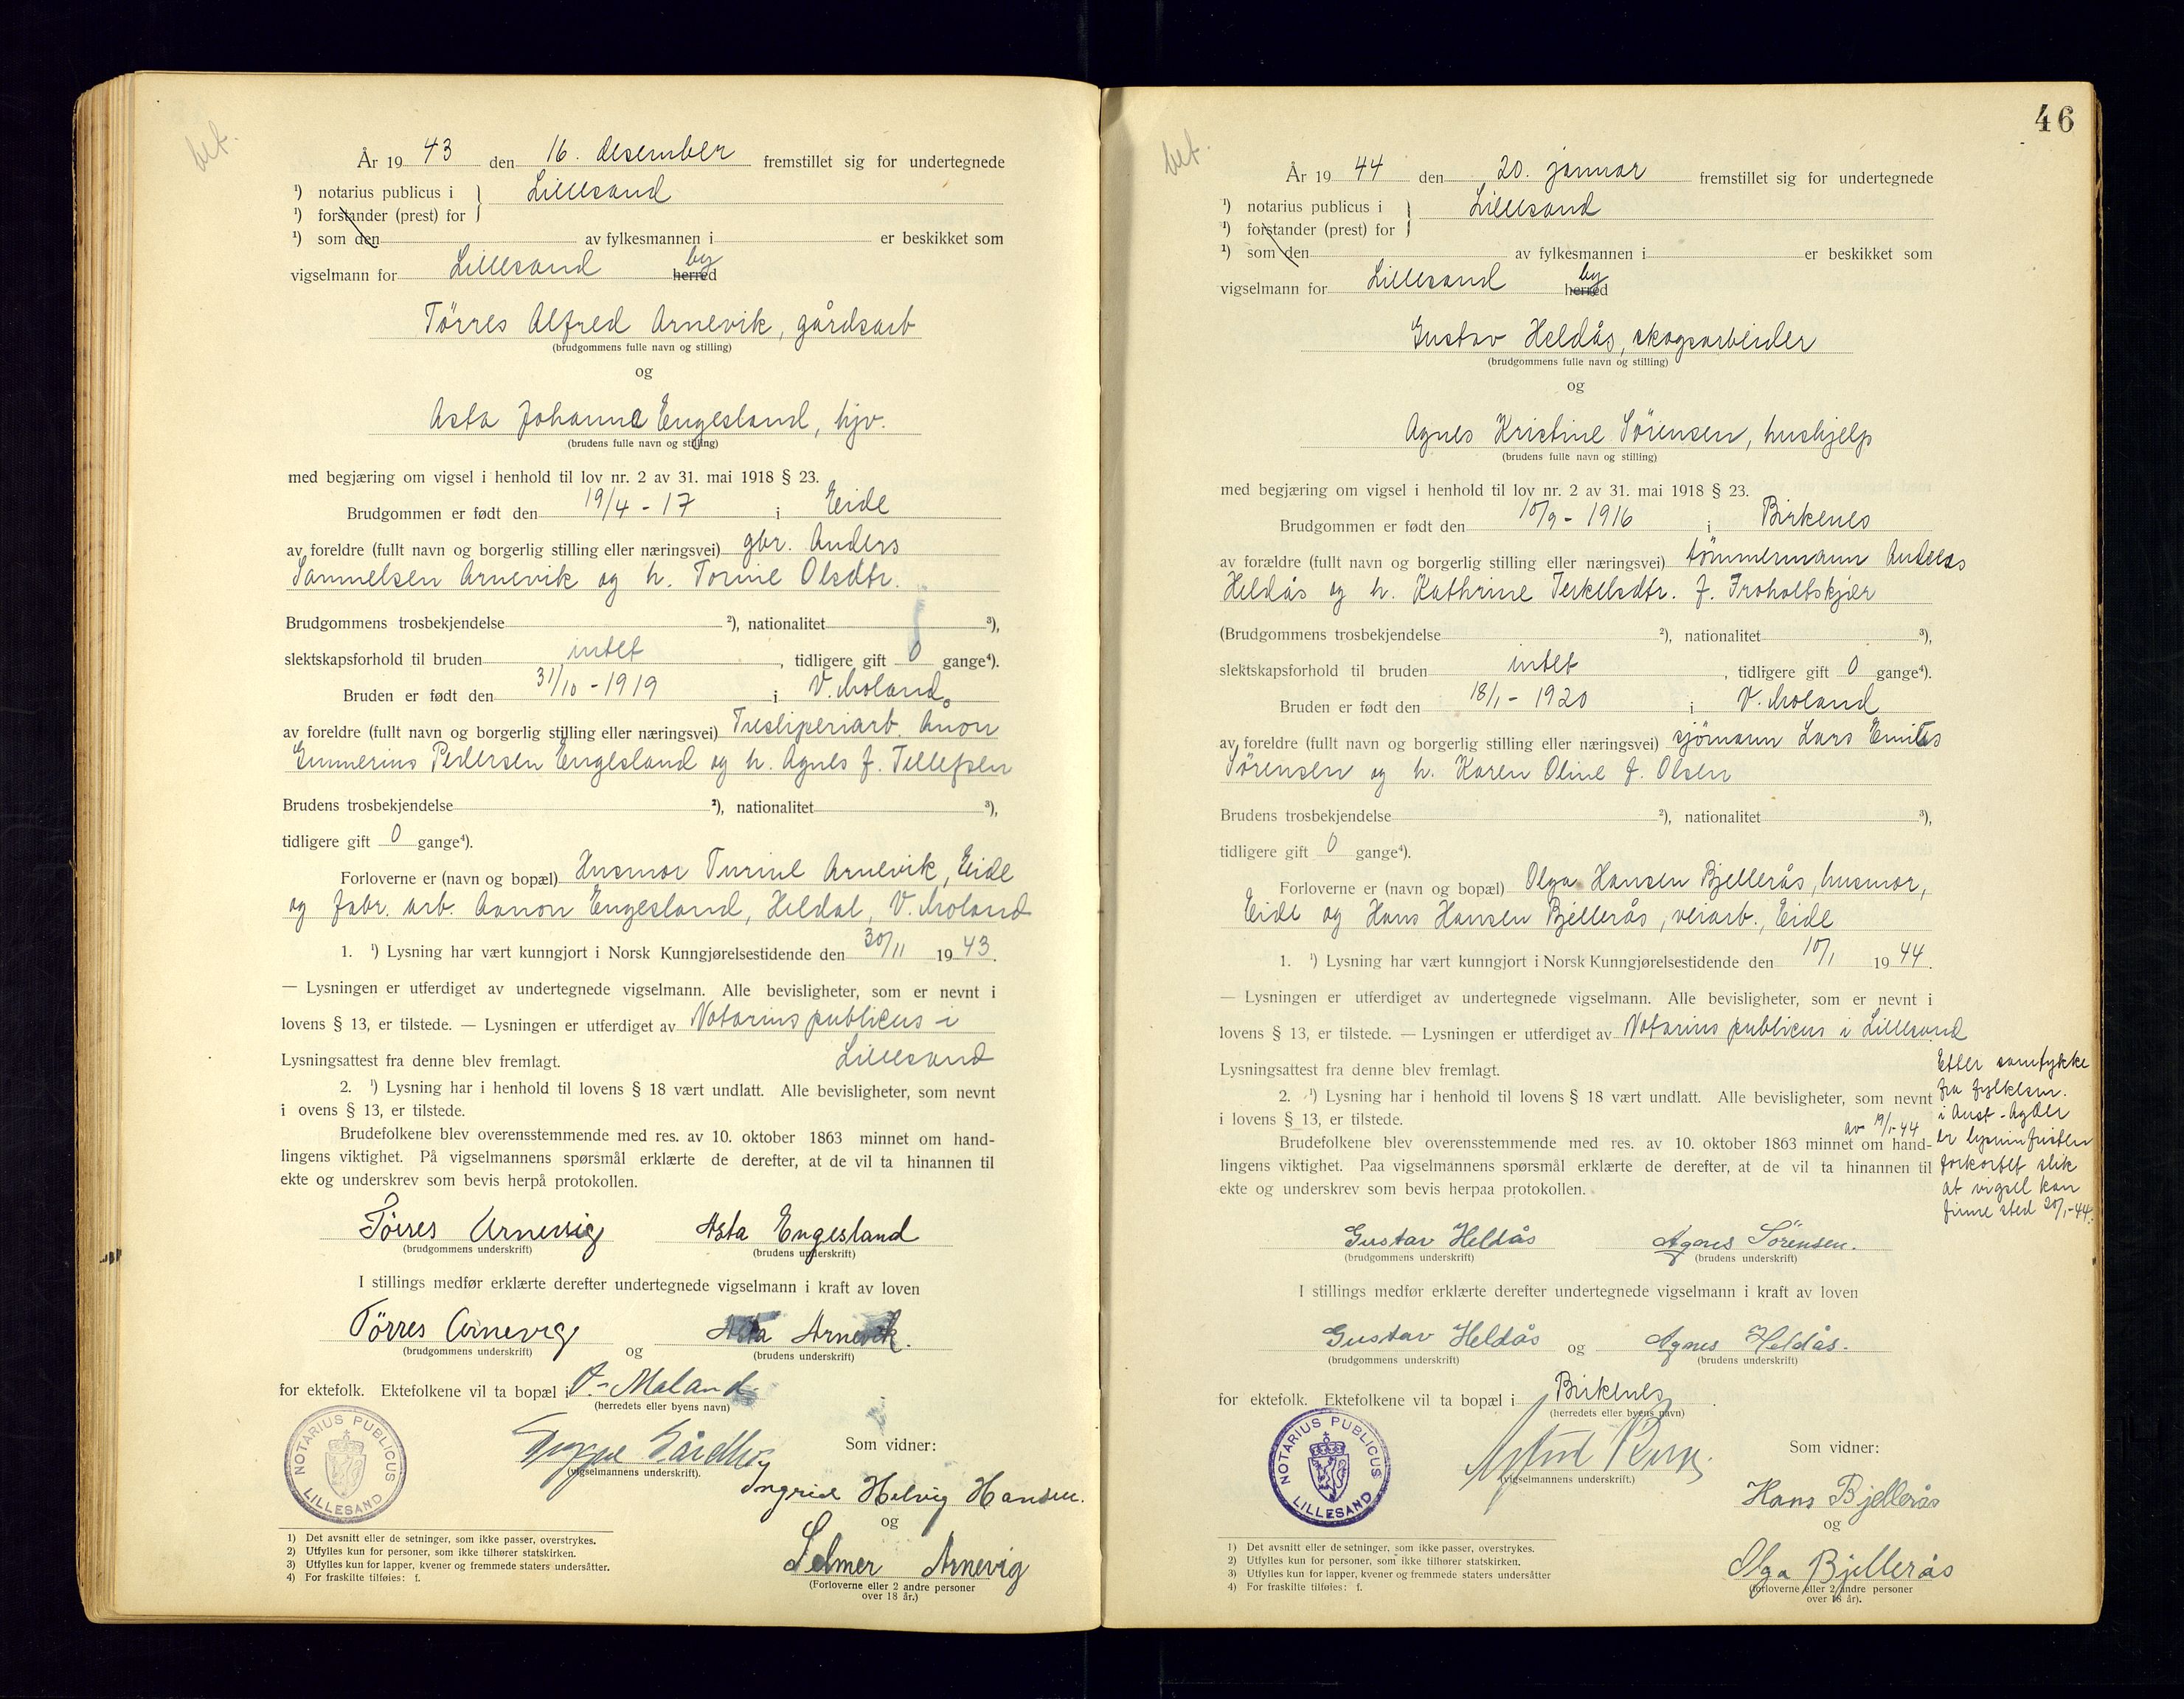 bet.
År 1943 den 16. desember fremstillet sig for undertegnede
¹) notarius publicus i } Lillesand
¹) forstander (prest) for
¹) som den av fylkesmannen i er beskikket som
by
vigselmann for Lillesand herred
Tørres Alfred Arnevik, gårdsarb
(brudgommens fulle navn og stilling)
og
Asta Johanne Engesland, hjv.
(brudens fulle navn og stilling)
med begjæring om vigsel i henhold til lov nr. 2 av 31. mai 1918 § 23.
Brudgommen er født den 19/4 - 17 i Eide
av foreldre (fullt navn og borgerlig stilling eller næringsvei) gbr. Anders
Samuelsen Arnevik og h. Torine Olsdtr.
Brudgommens trosbekjendelse ²), nationalitet ³),
slektskapsforhold til bruden intet, tidligere gift 0 gange⁴).
Bruden er født den 31/10 - 1919 i V. Moland
av foreldre (fullt navn og borgerlig stilling eller næringsvei) Tresliperiarb. Ånon
Gunnerius Pedersen Engesland og h. Agnes f. Tellefsen
Brudens trosbekjendelse ²), nationalitet ³),
tidligere gift 0 gange⁴).
Forloverne er (navn og bopæl) Husmor Turine Arnevik, Eide
og fabr. arb. Aanon Engesland, Heldal, V. Moland
1. ¹) Lysning har vært kunngjort i Norsk Kunngjørelsestidende den 30/11 1943.
— Lysningen er utferdiget av undertegnede vigselmann. Alle bevisligheter, som er nevnt i
lovens § 13, er tilstede. — Lysningen er utferdiget av Notarius publicus i
Lysningsattest fra denne blev fremlagt. Lillesand
2. ¹) Lysning har i henhold til lovens § 18 vært undlatt. Alle bevisligheter, som nevnt
i ovens § 13, er tilstede.
Brudefolkene blev overensstemmende med res. av 10. oktober 1863 minnet om hand-
lingens viktighet. På vigselmannens spørsmål erklærte de derefter, at de vil ta hinannen til
ekte og underskrev som bevis herpå protokollen.
Tørres Arnevig Asta Engesland
(brudgommens underskrift) (brudens underskrift)
I stillings medfør erklærte derefter undertegnede vigselmann i kraft av loven
Tørres Arnevig og Asta Arnevik.
(brudgommens underskrift) (brudens underskrift)
for ektefolk. Ektefolkene vil ta bopæl i V.-Moland
(herredets eller byens navn)
Som vidner:
(vigselmannens underskrift).
Ingrid Helvig Hansen.
og
Selmer Arnevig
(Forloverne eller 2 andre personer
over 18 år.)
NOTARIUS PUBLICUS
LILLESAND
1) Det avsnitt eller de setninger, som ikke passer, overstrykes.
2) Utfylles kun for personer, som ikke tilhører statskirken.
3) Utfylles kun for lapper, kvener og fremmede staters undersåtter.
4) For fraskilte tilføies: f.
46
bet.
År 1944 den 20. januar fremstillet sig for undertegnede
¹) notarius publicus i } Lillesand
¹) forstander (prest) for
¹) som den av fylkesmannen i er beskikket som
by
vigselmann for Lillesand herred
Gustav Heldås, skogsarbeider
(brudgommens fulle navn og stilling)
og
Agnes Kristine Sørensen, hushjelp
(brudens fulle navn og stilling)
med begjæring om vigsel i henhold til lov nr. 2 av 31. mai 1918 § 23.
Brudgommen er født den 10/9 - 1916 i Birkenes
av forældre (fullt navn og borgerlig stilling eller næringsvei) tømmermann Anders
Heldås og h. Kathrine Terkelsdtr. f. Froholtskjær
(Brudgommens trosbekjendelse ²), nationalitet ³),
slektskapsforhold til bruden intet, tidligere gift 0 gange⁴).
Bruden er født den 18/1 - 1920 i V. Moland
av foreldre (fullt navn og borgerlig stilling eller næringsvei) sjømann Lars Emil
Sørensen og h. Karen Oline f. Olsen
Brudens trosbekjendelse ²), nationalitet ³),
tidligere gift 0 gange⁴).
Forloverne er (navn og bopæl) Olga Hansen Bjellerås, husmor,
Eide og Hans Hansen Bjellerås, veiarb., Eide
1. ¹) Lysning har vært kunngjort i Norsk Kunngjørelsestidende den 10/1 1944.
— Lysningen er utferdiget av undertegnede vigselmann. Alle bevisligheter, som er nevnt i
lovens § 13, er tilstede. — Lysningen er utferdiget av Notarius publicus i Lillesand
Lysningsattest fra denne blev fremlagt.
2. ¹) Lysning har i henhold til lovens § 18 vært undlatt. Alle bevisligheter, som nevnt
i lovens § 13, er tilstede.
Brudefolkene blev overensstemmende med res. av 10. oktober 1863 minnet om hand-
lingens viktighet. Paa vigselmannens spørsmål erklærte de derefter, at de vil ta hinannen til
ekte og underskrev som bevis herpaa protokollen.
Etter samtykke
fra fylkesm.
i Aust-Agder
av 19/1-44
er lysninfristen
forkortet slik
at vigsel kan
finne sted 20/1-44.
Gustav Heldås Agnes Sörensen.
(brudgommens underskrift) (brudens underskrift)
I stillings medfør erklærte derefter undertegnede vigselmann i kraft av loven
Gustav Heldås og Agnes Heldås.
(brudgommens underskrift) (brudens underskrift)
for ektefolk. Ektefolkene vil ta bopæl i Birkenes.
(herredets eller byens navn)
Som vidner:
(vigselmannens underskrift.)
Hans Bjellerås
og
Olga Bjellerås
(forloverne eller 2 andre personer
over 18 år).
NOTARIUS PUBLICUS
LILLESAND
1) Det avsnitt eller de setninger, som ikke passer, overstrykes.
2) Utfylles kun for personer, som ikke tilhører statskirken.
3) Utfylles kun for lapper, kvener og fremmede staters undersåtter
4) For fraskilte tilføies: f.